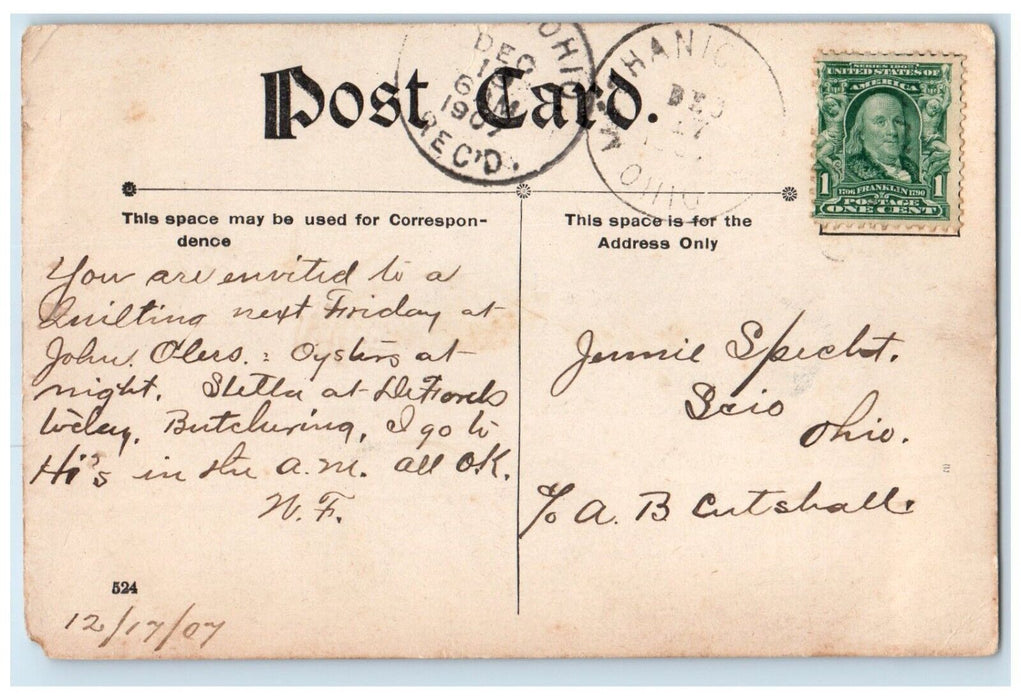 Post Card.
OHIO
DEC
6 AM
1907
REC'D.
HANIC
DEC
17
OHIO
SERIES 1902
UNITED STATES OF
AMERICA
1 1706 FRANKLIN 1790 1
POSTAGE
ONE CENT
This space may be used for Correspon-
dence
This space is for the
Address Only
You are envited to a
Quilting next Friday at
John. Olers. : Oysters at
night. Stella at DeFords
today. Butchering, I go to
Hi's in the a.m. all O.K.
W. F.
Jennie Specht.
Scio
Ohio.
c/o A. B Cutshall.
524
12/17/07